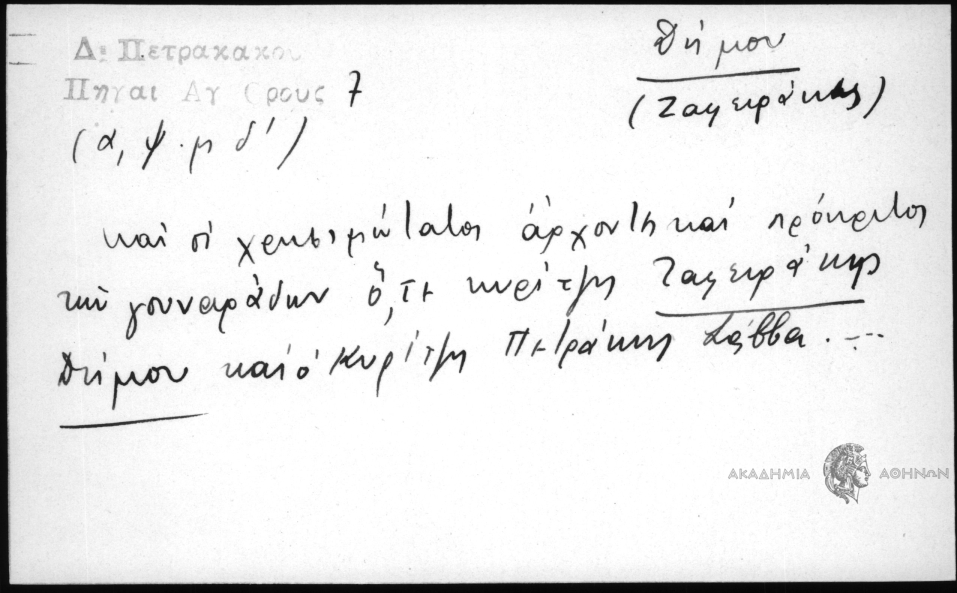 Δ. Πετρακακου
Πηγαι Αγ Ορους 7
(α, ψ. μ δ')
Θήμου
(Ζαφειράκης)
καὶ οἱ χρησιμώτατοι ἄρχοντες καὶ πρόκριτοι
τῶν γουναράδων ὅ, τε κυρίτζης Ζαφειράκης
Θήμου καὶ ὁ Κυρίτζης Πετράκης Σάββα. ...
ΑΚΑΔΗΜΙΑ ΑΘΗΝΩΝ